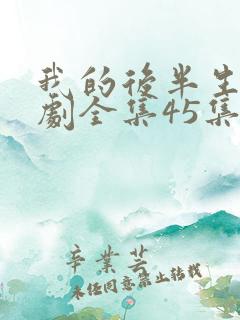 我的後半生
劇全集45集
辛業芸
未经同意禁止转载